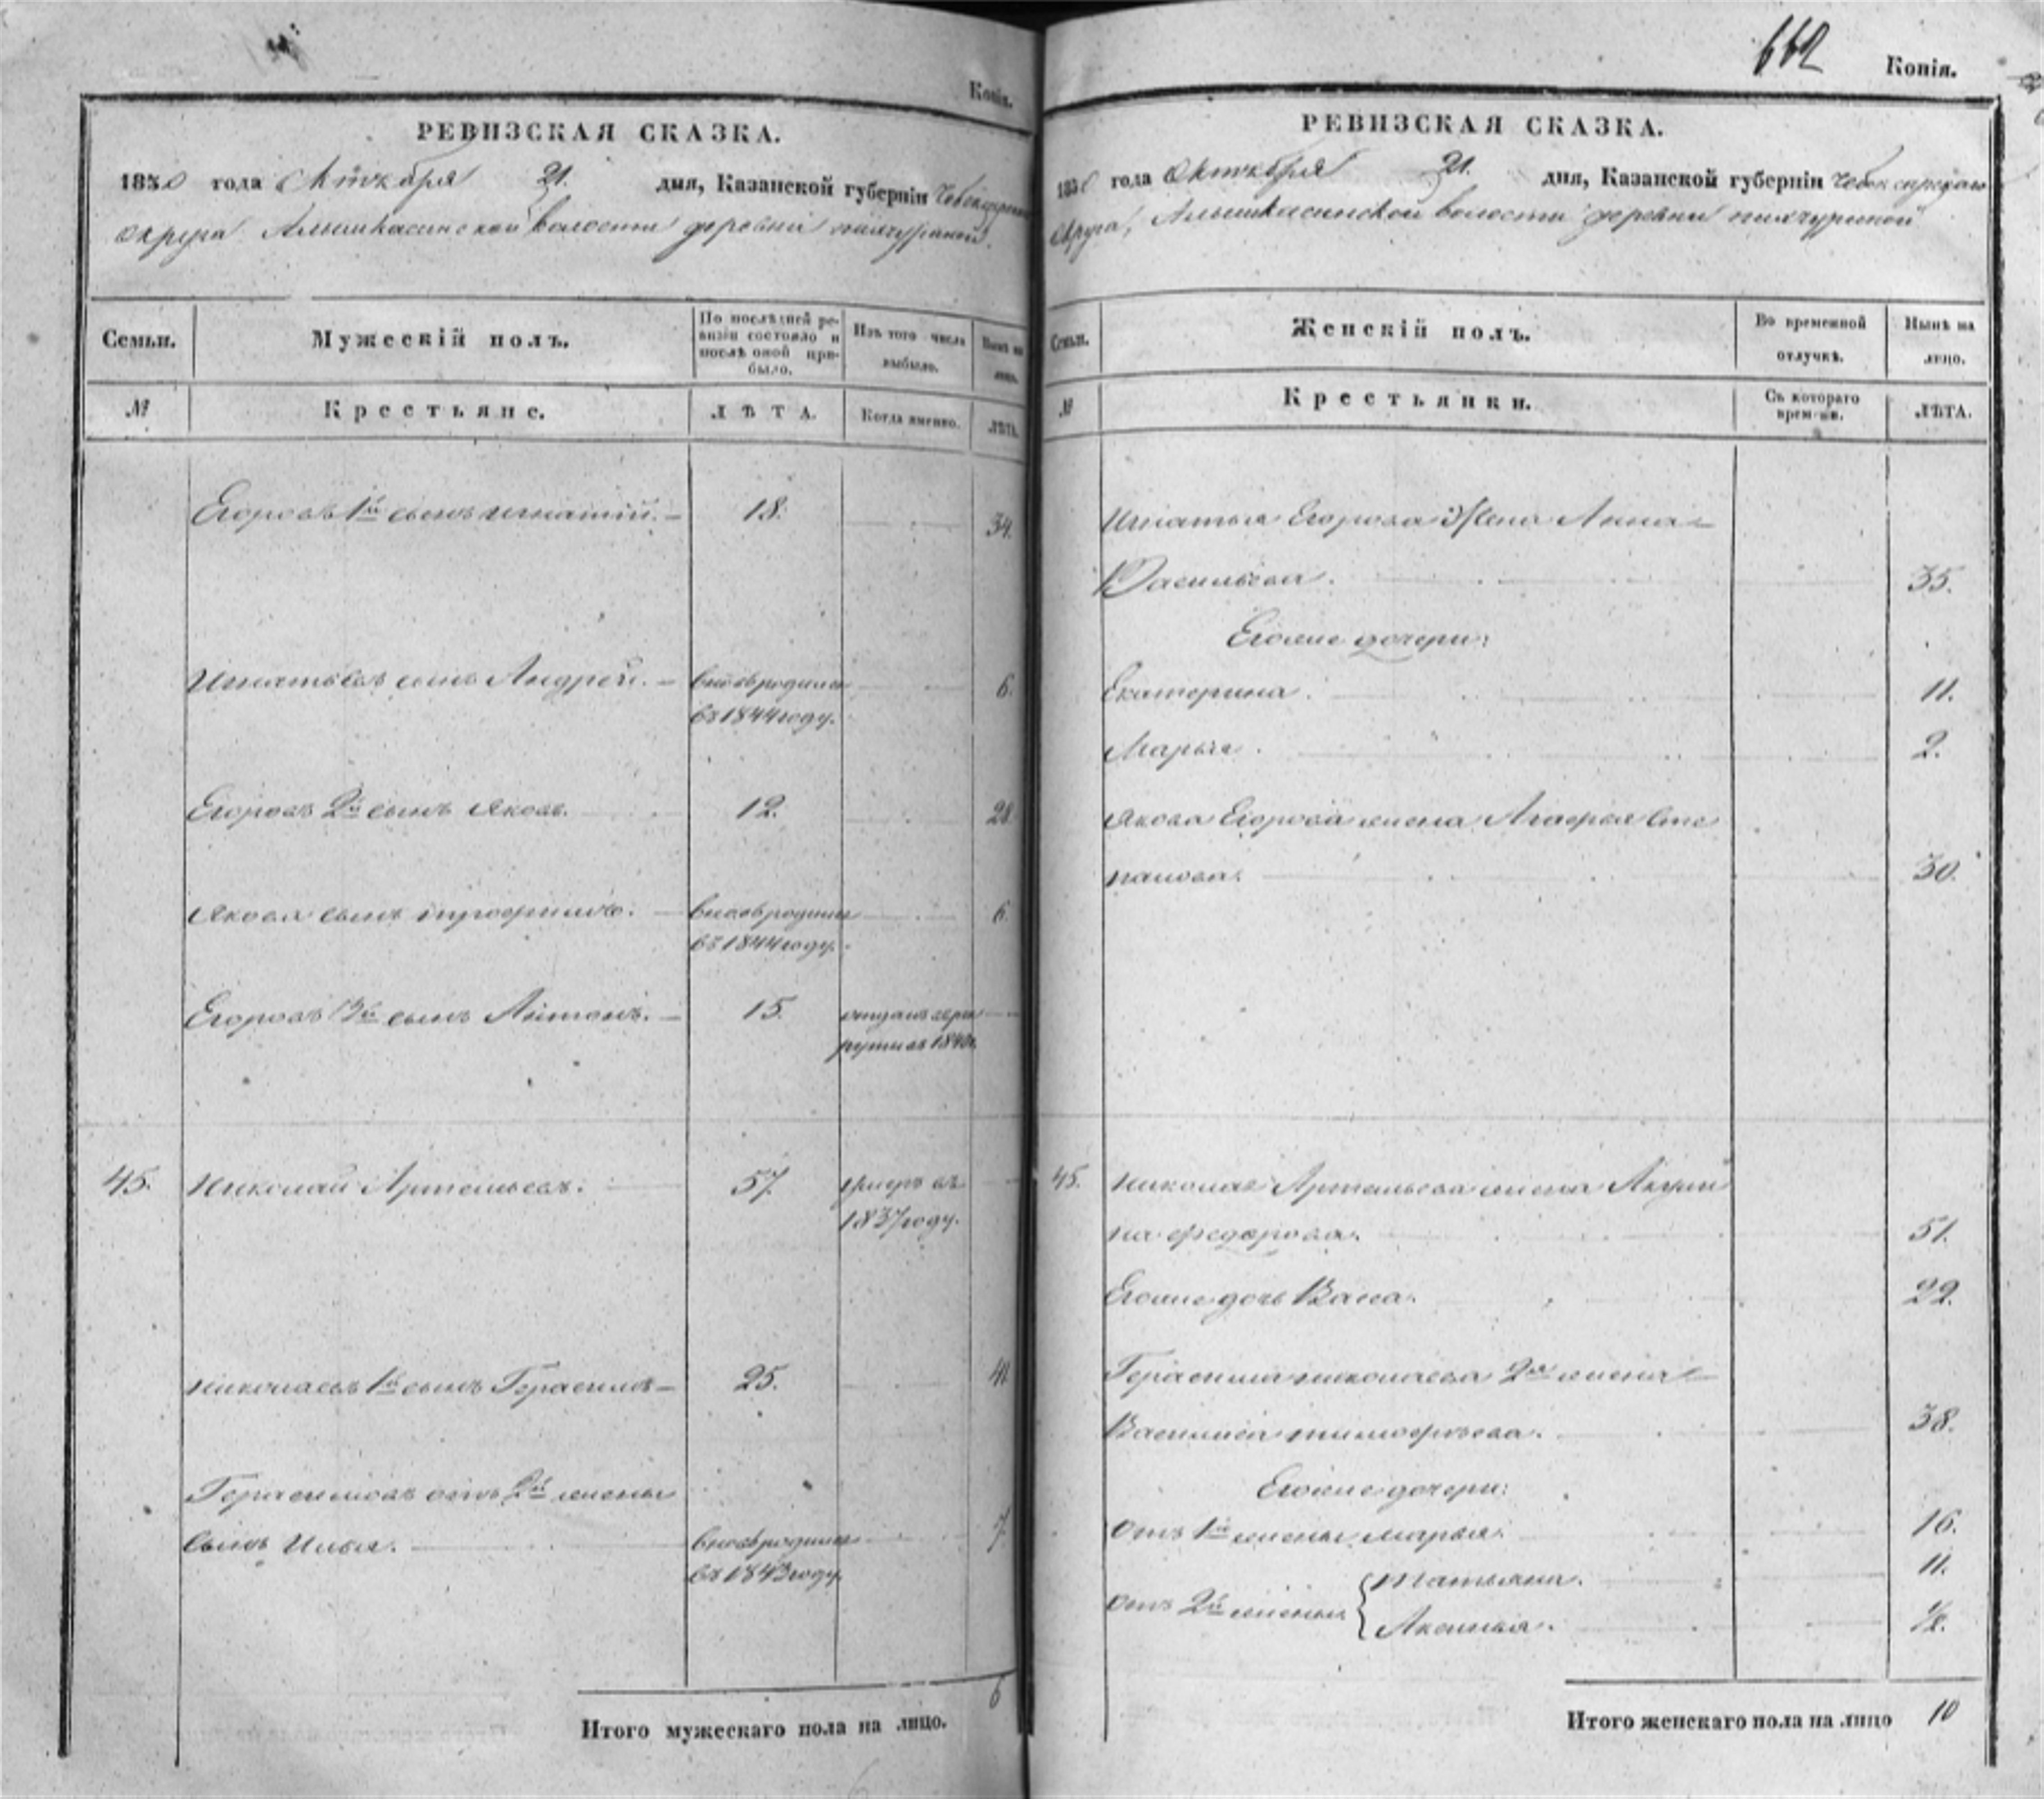 Копія.
РЕВИЗСКАЯ СКАЗКА.
1850 года Октября 21. дня, Казанской губерніи Чебоксарскаго
округа Алымкасинской волости деревни
Семьи.
Мужескій полъ.
По послѣдней ре-
визіи состояло и
послѣ оной при-
было.
Изъ того числа
выбыло.
Нынѣ на
лицо.
№
Крестьяне.
ЛѢТА.
Когда именно.
ЛѢТА.
Егоровъ 1й сынъ Игнатій. 18. 34.
Игнатьевъ сынъ Андрей. вновьродился 6.
въ 1844 году.
Егоровъ 2й сынъ Яковъ. 12. 28.
Якова сынъ Трофимъ. вновьродился 6.
въ 1844 году.
Егоровъ 3й сынъ Антонъ. 15. отданъ в
рекруты въ
45. Николай Артемьевъ. 57. умеръ въ
1837 году.
Николаевъ 1й сынъ Герасимъ 25. 41.
Герасимовъ отъ 2й жены
сынъ Илья. вновьродился 7.
въ 1843 году.
6
Итого мужескаго пола на лицо.
662
Копія.
РЕВИЗСКАЯ СКАЗКА.
1850 года Октября 21. дня, Казанской губерніи Чебоксарскаго
округа, Алымкасинской волости деревни
Семьи.
Женскій полъ.
Во временной
отлучкѣ.
Нынѣ на
лицо.
№
Крестьянки.
Съ котораго
времени.
ЛѢТА.
Игнатья Егорова жена Анна
Васильева. 35.
Егоже дочери:
Екатерина. 11.
Марья. 2.
Якова Егорова жена Агафья Сте
панова. 30.
45. Николая Артемьева жена Акули
на Федорова. 51.
Егоже дочь Васса. 22.
Герасима Николаева 2я жена
Василиса Тимофѣева. 38.
Егоже дочери:
Отъ 1й жены Марья. 16.
Татьяна. 11.
Отъ 2й жены
Аксинья. 1/2.
Итого женскаго пола на лицо 10